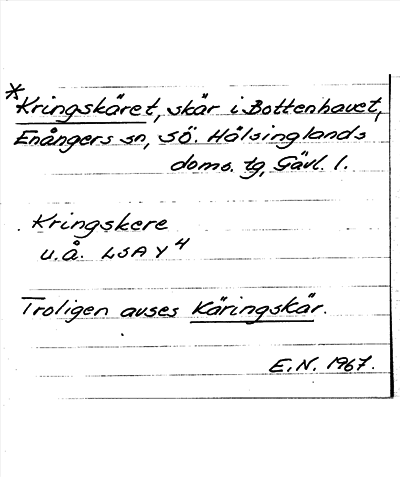 *Kringskäret, skär i Bottenhavet,
Enångers sn, Sö. Hälsinglands
doms. tg, Gävl. l.
Kringskere
u.å. LSA Y4
Troligen avses Käringskär.
E.N. 1967.